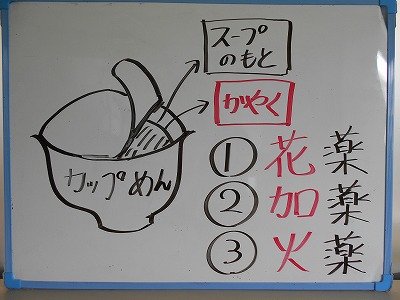 スープ
のもと
かやく
カップめん
① 花薬
② 加薬
③ 火薬